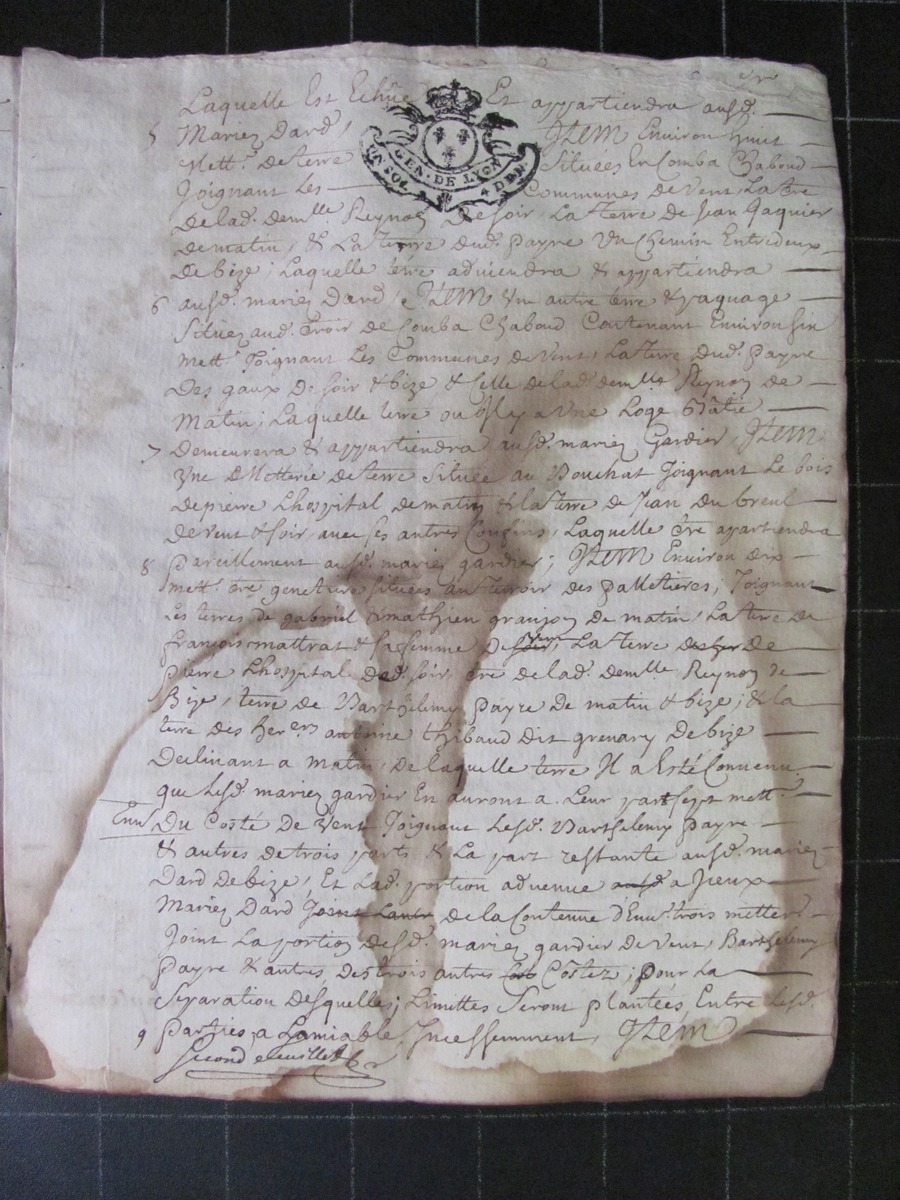 Laquelle Est Echüe Et appartiendra ausd.
5 Mariez Dard, Jtem Environ huit
Mett.s de terre Situées En Comba Chaboud
GEN. DE LYON
UN SOL 4 DEN.
Joignant Les Communes de Vent, La tre
de lad. demlle Reynon De soir, La terre de Jean Gaquier
de matin, & La terre dud. payre Un Chemin Entredeux
de bize; Laquelle terre adviendra & appartiendra
6 ausd. mariez Dard, Jtem Une autre terre & paquage
Situez aud. Troir de Comba Chaboud Contenant Environ six
mett.s Joignant Les Communes de Vent, La terre dud. payre
Des gaux De soir & bize & Celle de lad. demlle Reynon de
Matin; Laquelle terre ou Il y a Une Loge Bâtie
7 Demeurera & appartiendra ausd. mariez Gardier, Jtem
Une Metterée de terre Située au Bouchat Joignant Le bois
de pierre Lhospital de matin & la terre de Jean Du breul
de Vent & soir, avec ses autres Confins, Laquelle tre apartiendra
8 pareillement ausd. mariez gardier; Jtem Environ dix
mett.s tre genetiere situées au Terroir des palletieres, Joignant
Les terres de gabriel & mathieu granjon de matin, La tre de
françois mattrat & sa femme De Vent, La terre de
pierre Lhospital de soir, tre de lad. demlle Reynon de
Bize, terre de Barthelemy payre De matin & bize; & la
terre des hers antoine thibaud dit grenary De bize
Declinant a matin, de laquelle terre Il a Esté Convenu
que Lesd. mariez gardier En auront a Leur part sept mett.s
Du Costé De Vent Joignant Lesd. Barthelemy payre
& autres de trois parts & La part restante ausd. mariez
Dard De bize, Et Lad. portion advenue a Jceux
Mariez Dard de la Contenue d'Env. trois metters
Joint La portion desd. mariez gardier de Vent, Barthelemy
payre & autres des trois autres Côtez; pour La
Separation Desquelles; Limittes Seront plantées Entre Lesd.
9 Parties a Lamiable Jncessemment, Jtem
Second feuillet